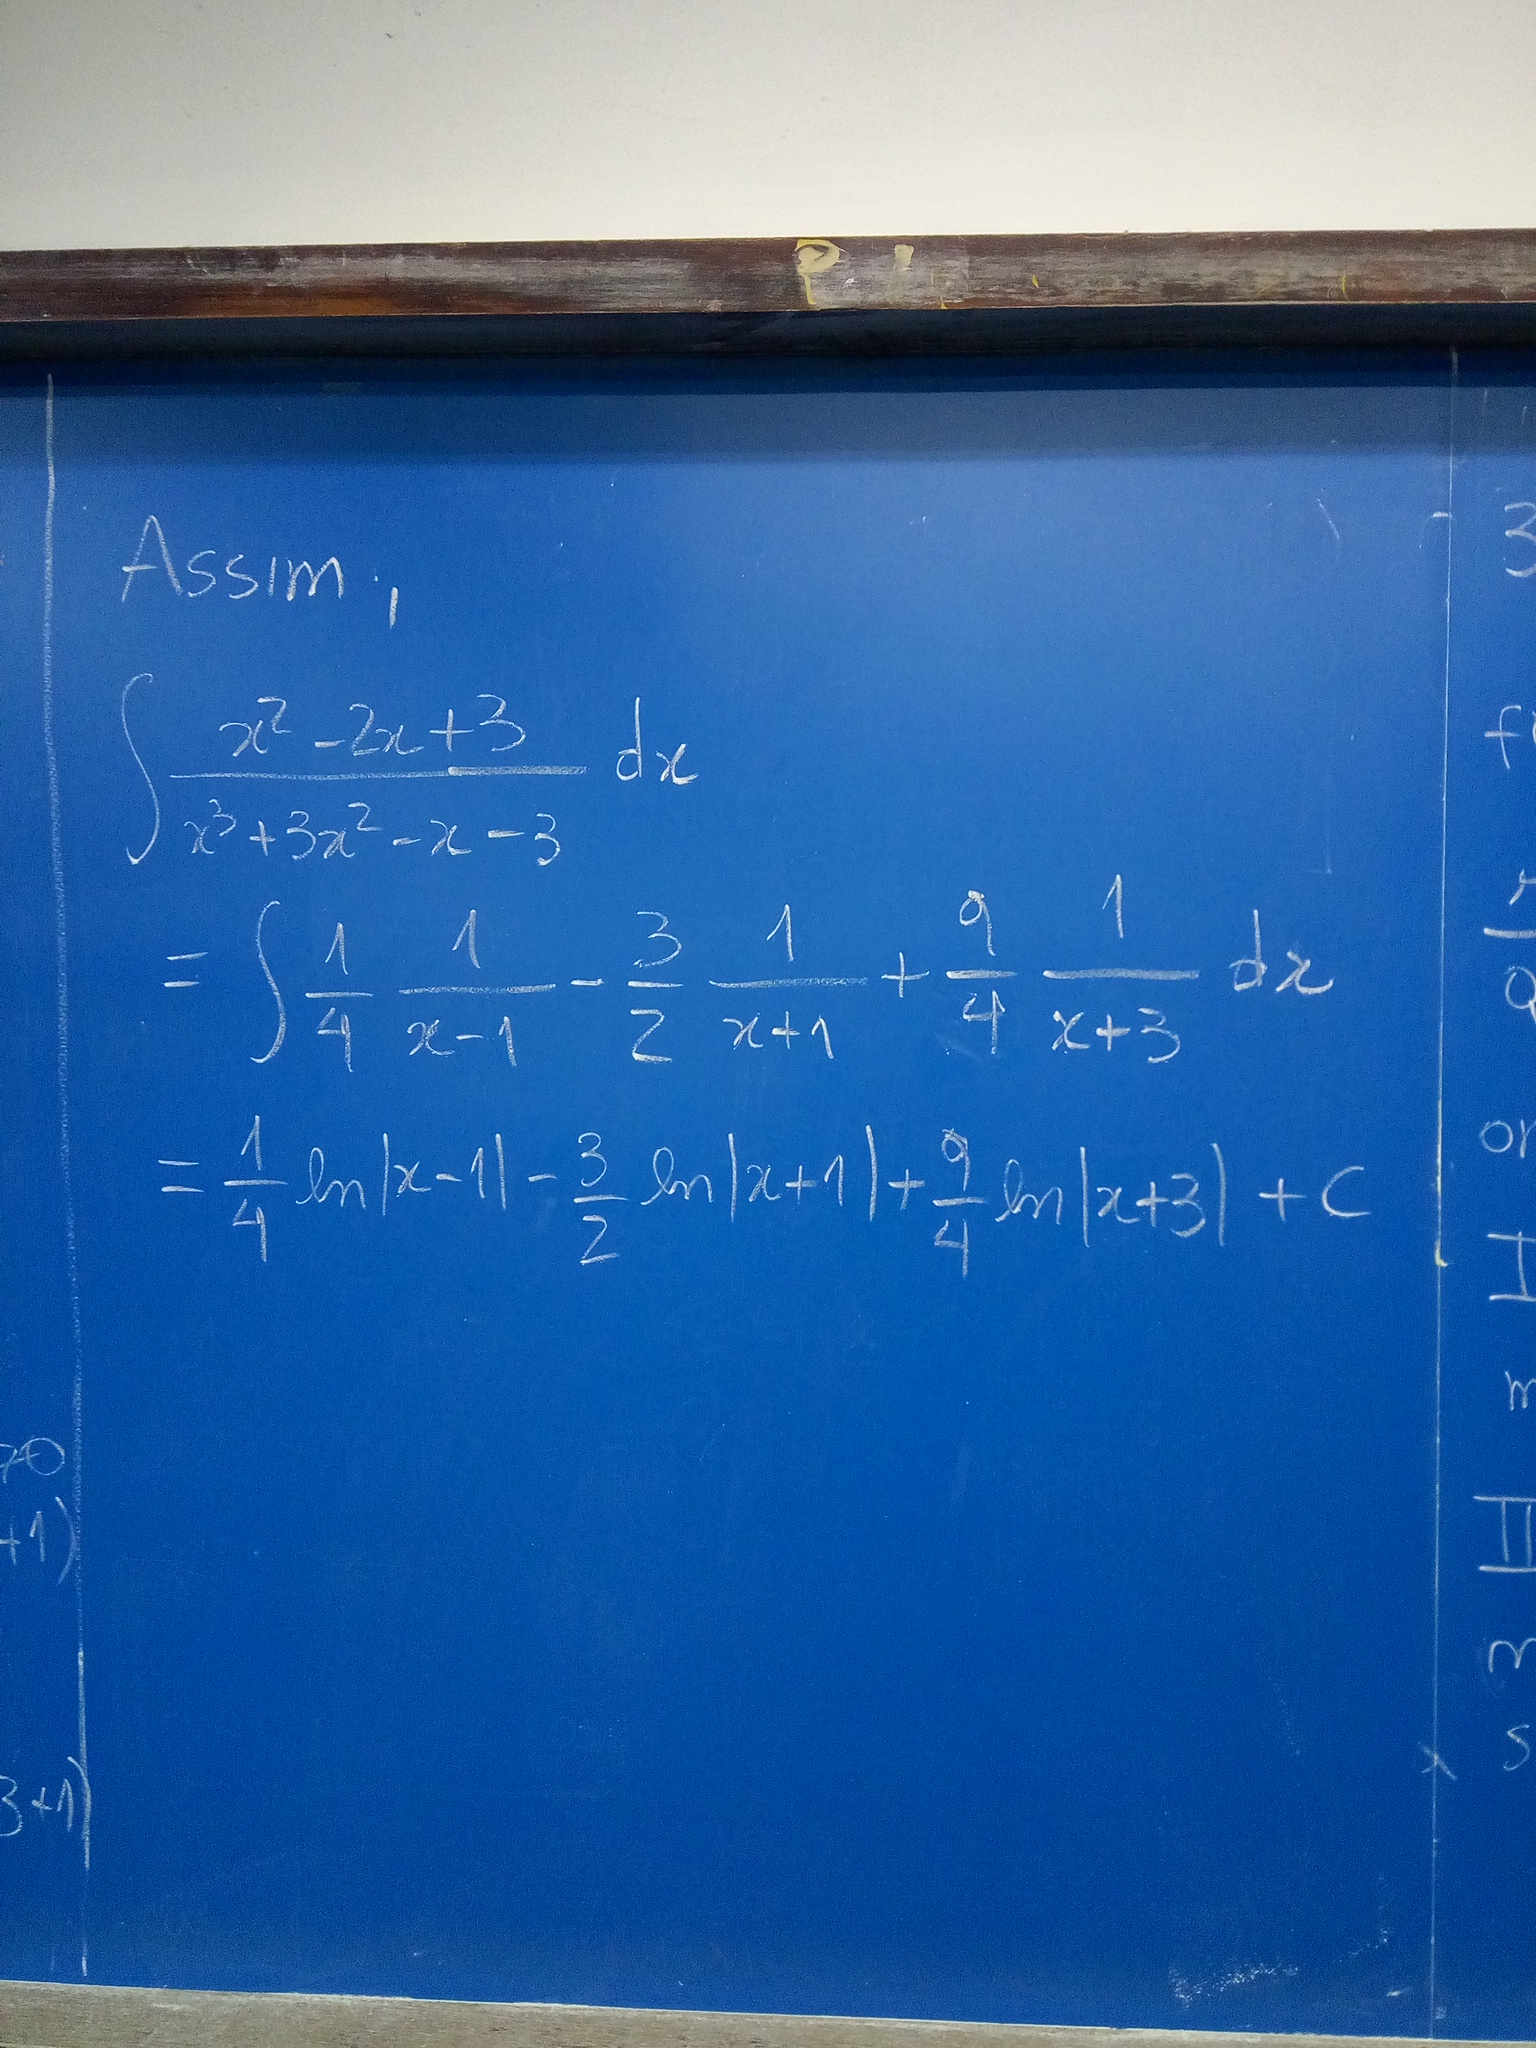 Assim,
∫ (x² - 2x + 3)/(x³ + 3x² - x - 3) dx
= ∫ 1/4 1/(x-1) - 3/2 1/(x+1) + 9/4 1/(x+3) dx
= 1/4 ln|x-1| - 3/2 ln|x+1| + 9/4 ln|x+3| + C
+1)
3+1)